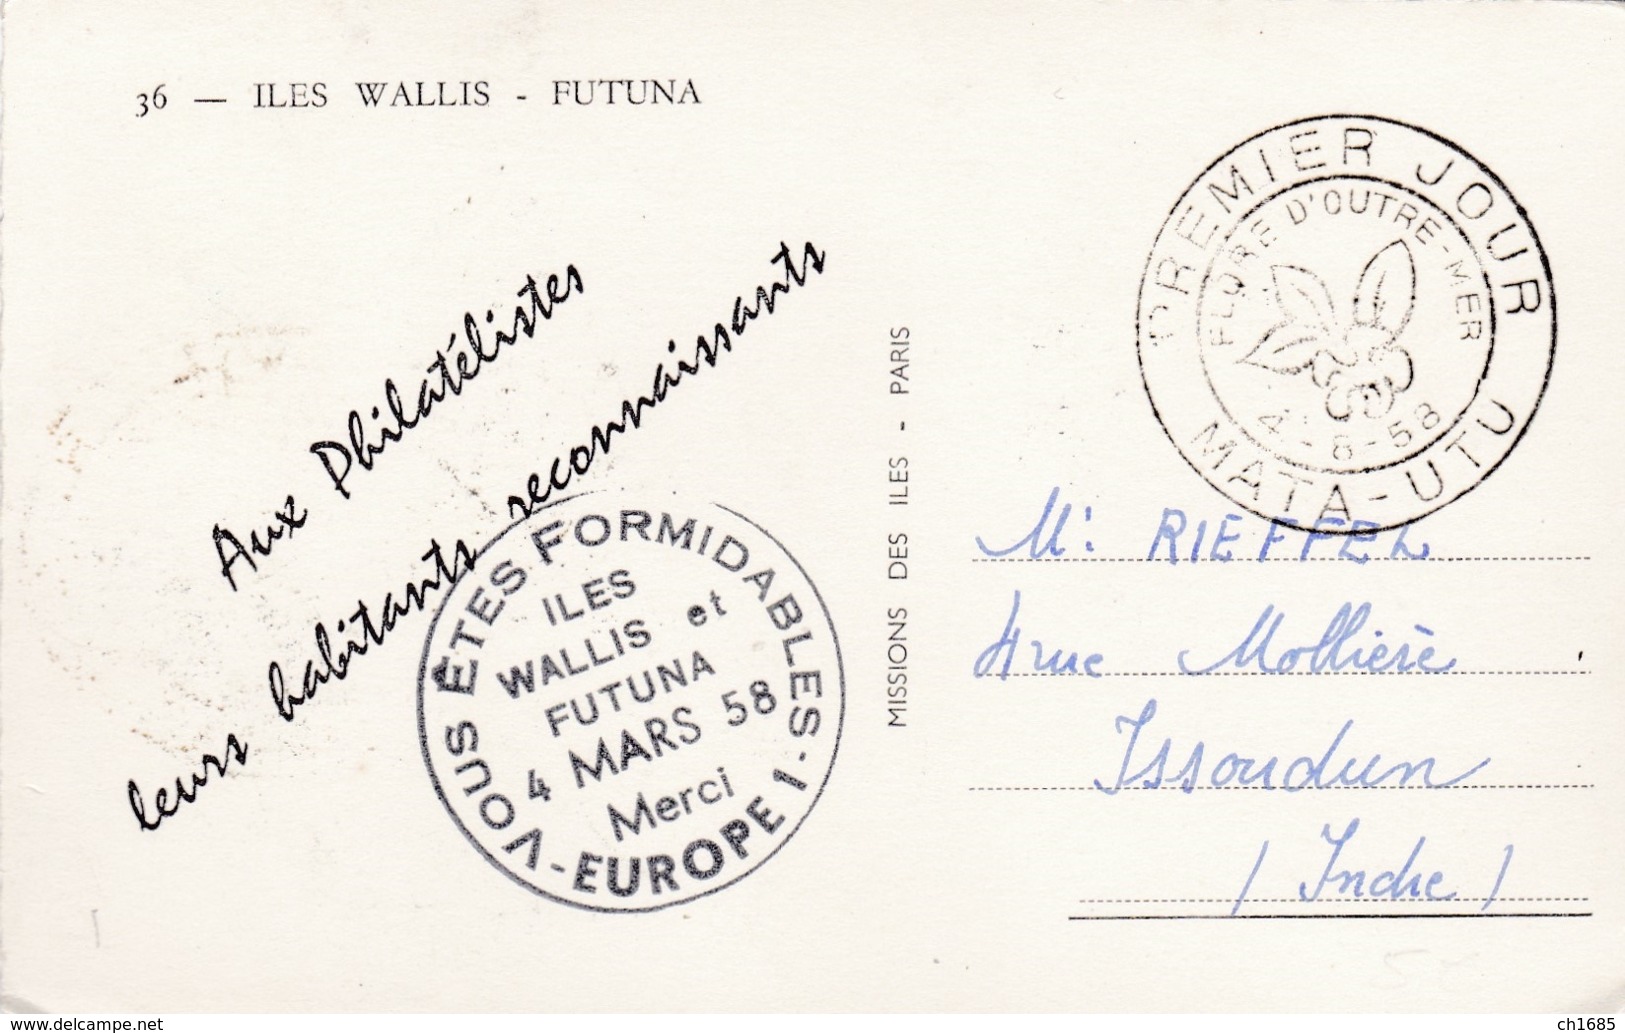 36 — ILES WALLIS - FUTUNA
Aux Philatélistes
leurs habitants reconnaissants
VOUS ÊTES FORMIDABLES - EUROPE 1
ILES
WALLIS et
FUTUNA
4 MARS 58
Merci
MISSIONS DES ILES - PARIS
PREMIER JOUR
FLORE D'OUTRE-MER
4-8-58
MATA-UTU
Mr: RIEFFEL
4 rue Mollière
Issoudun
(Indre)
www.delcampe.net
ch1685